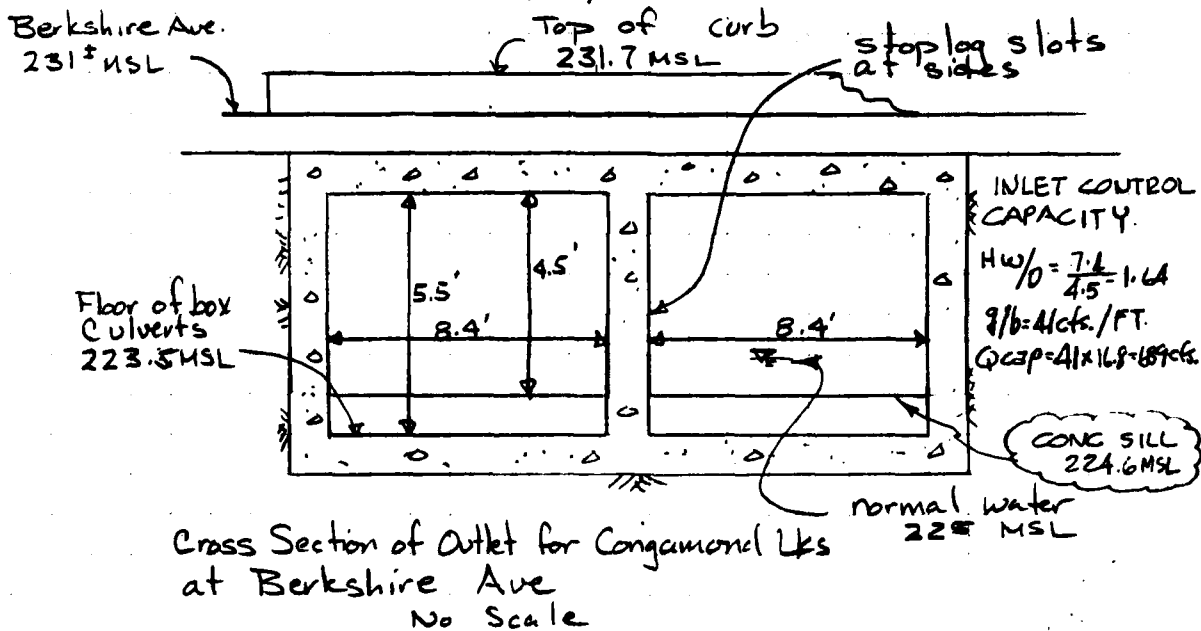 Berkshire Ave.
231± MSL
Top of curb
231.7 MSL
stoplog slots
at sides
INLET CONTROL
CAPACITY.
HW/D = 7.4/4.5 = 1.64
q/b = 41 cfs./FT.
Qcap = 41 x 16.8 = 689 cfs.
5.5'
4.5'
8.4'
8.4'
Floor of box
Culverts
223.5 MSL
CONC SILL
224.6 MSL
normal water
MSL
Cross Section of Outlet for Congamond Lks
at Berkshire Ave
No Scale